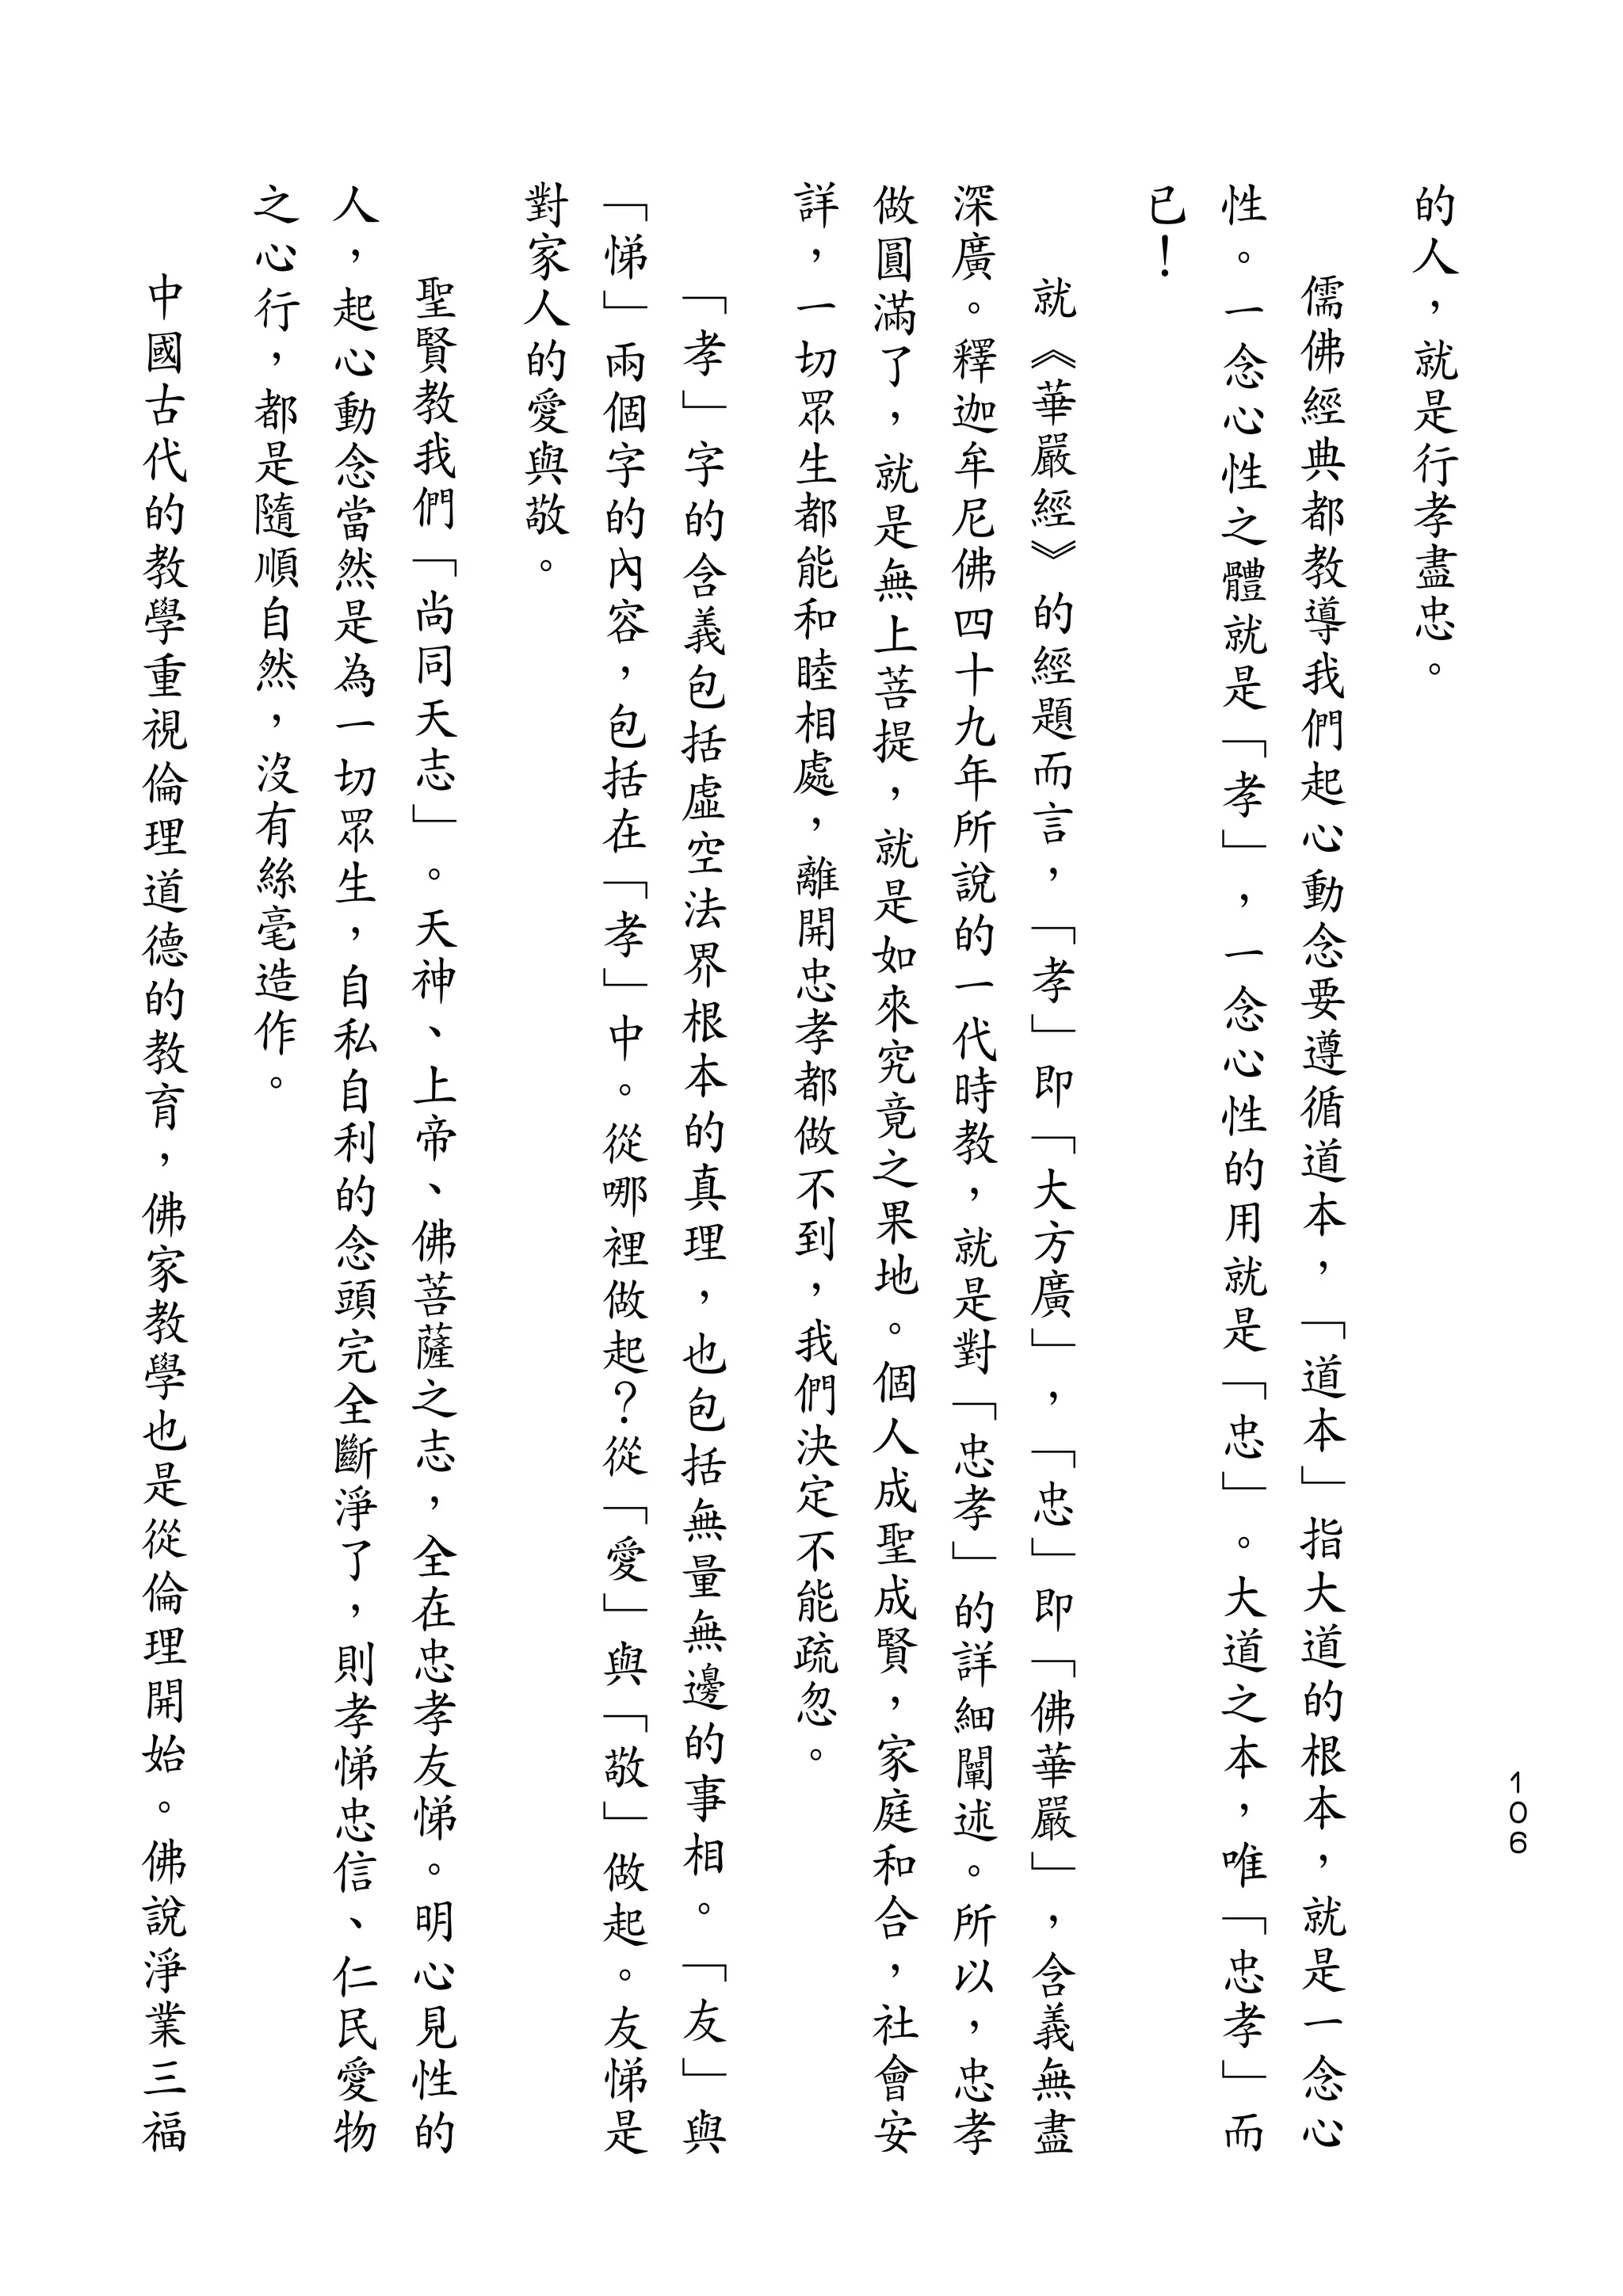 106
的人，就是行孝盡忠。
儒佛經典都教導我們起心動念要遵循道本，「道本」指大道的根本，就是一念心
性。一念心性之體就是「孝」，一念心性的用就是「忠」。大道之本，唯「忠孝」而
已！
就《華嚴經》的經題而言，「孝」即「大方廣」，「忠」即「佛華嚴」，含義無盡
深廣。釋迦牟尼佛四十九年所說的一代時教，就是對「忠孝」的詳細闡述。所以，忠孝
做圓滿了，就是無上菩提，就是如來究竟之果地。個人成聖成賢，家庭和合，社會安
詳，一切眾生都能和睦相處，離開忠孝都做不到，我們決定不能疏忽。
「孝」字的含義包括虛空法界根本的真理，也包括無量無邊的事相。「友」與
「悌」兩個字的內容，包括在「孝」中。從哪裡做起？從「愛」與「敬」做起。友悌是
對家人的愛與敬。
聖賢教我們「尚同天志」。天神、上帝、佛菩薩之志，全在忠孝友悌。明心見性的
人，起心動念當然是為一切眾生，自私自利的念頭完全斷淨了，則孝悌忠信、仁民愛物
之心行，都是隨順自然，沒有絲毫造作。
中國古代的教學重視倫理道德的教育，佛家教學也是從倫理開始。佛說淨業三福